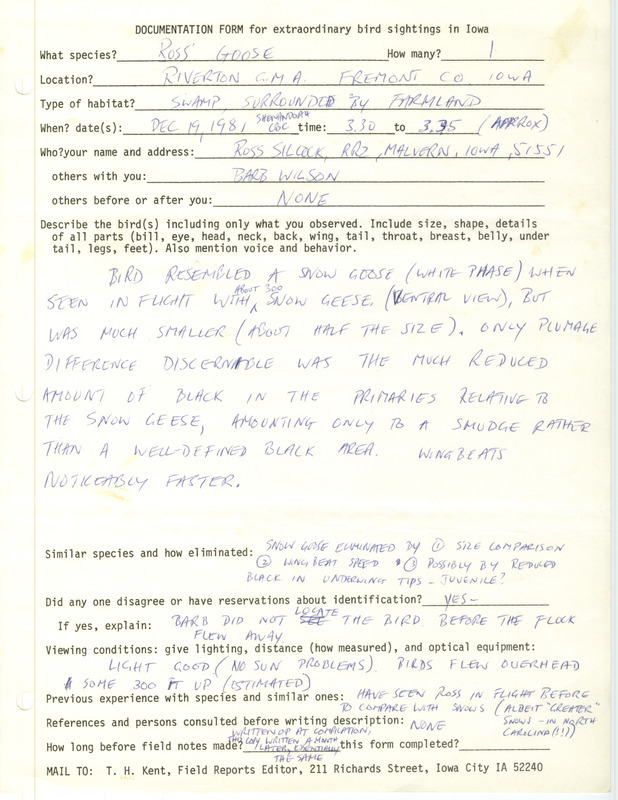 DOCUMENTATION FORM for extraordinary bird sightings in Iowa
What species? ROSS' GOOSE How many? 1
Location? RIVERTON G.M.A. FREMONT CO IOWA
Type of habitat? SWAMP, SURROUNDED BY FARMLAND
SHENANDOAH
When? date(s): DEC 19, 1981 CBC time: 3.30 to 3.35 (APPROX)
Who?your name and address: ROSS SILCOCK, RR2, MALVERN, IOWA, 51551
others with you: BARB WILSON
others before or after you: NONE
Describe the bird(s) including only what you observed. Include size, shape, details
of all parts (bill, eye, head, neck, back, wing, tail, throat, breast, belly, under
tail, legs, feet). Also mention voice and behavior.
BIRD RESEMBLED A SNOW GOOSE (WHITE PHASE) WHEN
ABOUT 300
SEEN IN FLIGHT WITH SNOW GEESE. (VENTRAL VIEW), BUT
WAS MUCH SMALLER (ABOUT HALF THE SIZE). ONLY PLUMAGE
DIFFERENCE DISCERNABLE WAS THE MUCH REDUCED
AMOUNT OF BLACK IN THE PRIMARIES RELATIVE TO
THE SNOW GEESE, AMOUNTING ONLY TO A SMUDGE RATHER
THAN A WELL-DEFINED BLACK AREA. WINGBEATS
NOTICEABLY FASTER.
Similar species and how eliminated: SNOW GOOSE ELIMINATED BY ① SIZE COMPARISON
② WINGBEAT SPEED & ③ POSSIBLY BY REDUCED
BLACK IN UNDERWING TIPS - JUVENILE?
Did any one disagree or have reservations about identification? YES-
LOCATE
If yes, explain: BARB DID NOT SEE THE BIRD BEFORE THE FLOCK
FLEW AWAY.
Viewing conditions: give lighting, distance (how measured), and optical equipment:
LIGHT GOOD (NO SUN PROBLEMS). BIRDS FLEW OVERHEAD
SOME 300 FT UP (ESTIMATED)
Previous experience with species and similar ones: HAVE SEEN ROSS IN FLIGHT BEFORE
TO COMPARE WITH SNOWS (ALBEIT "GREATER"
References and persons consulted before writing description: NONE SNOWS - IN NORTH
CAROLINA (!!))
WRITTEN UP AT COMPILATION,
THIS COPY WRITTEN A MONTH
How long before field notes made? LATER, ESSENTIALLY this form completed?
THE SAME
MAIL TO: T. H. Kent, Field Reports Editor, 211 Richards Street, Iowa City IA 52240